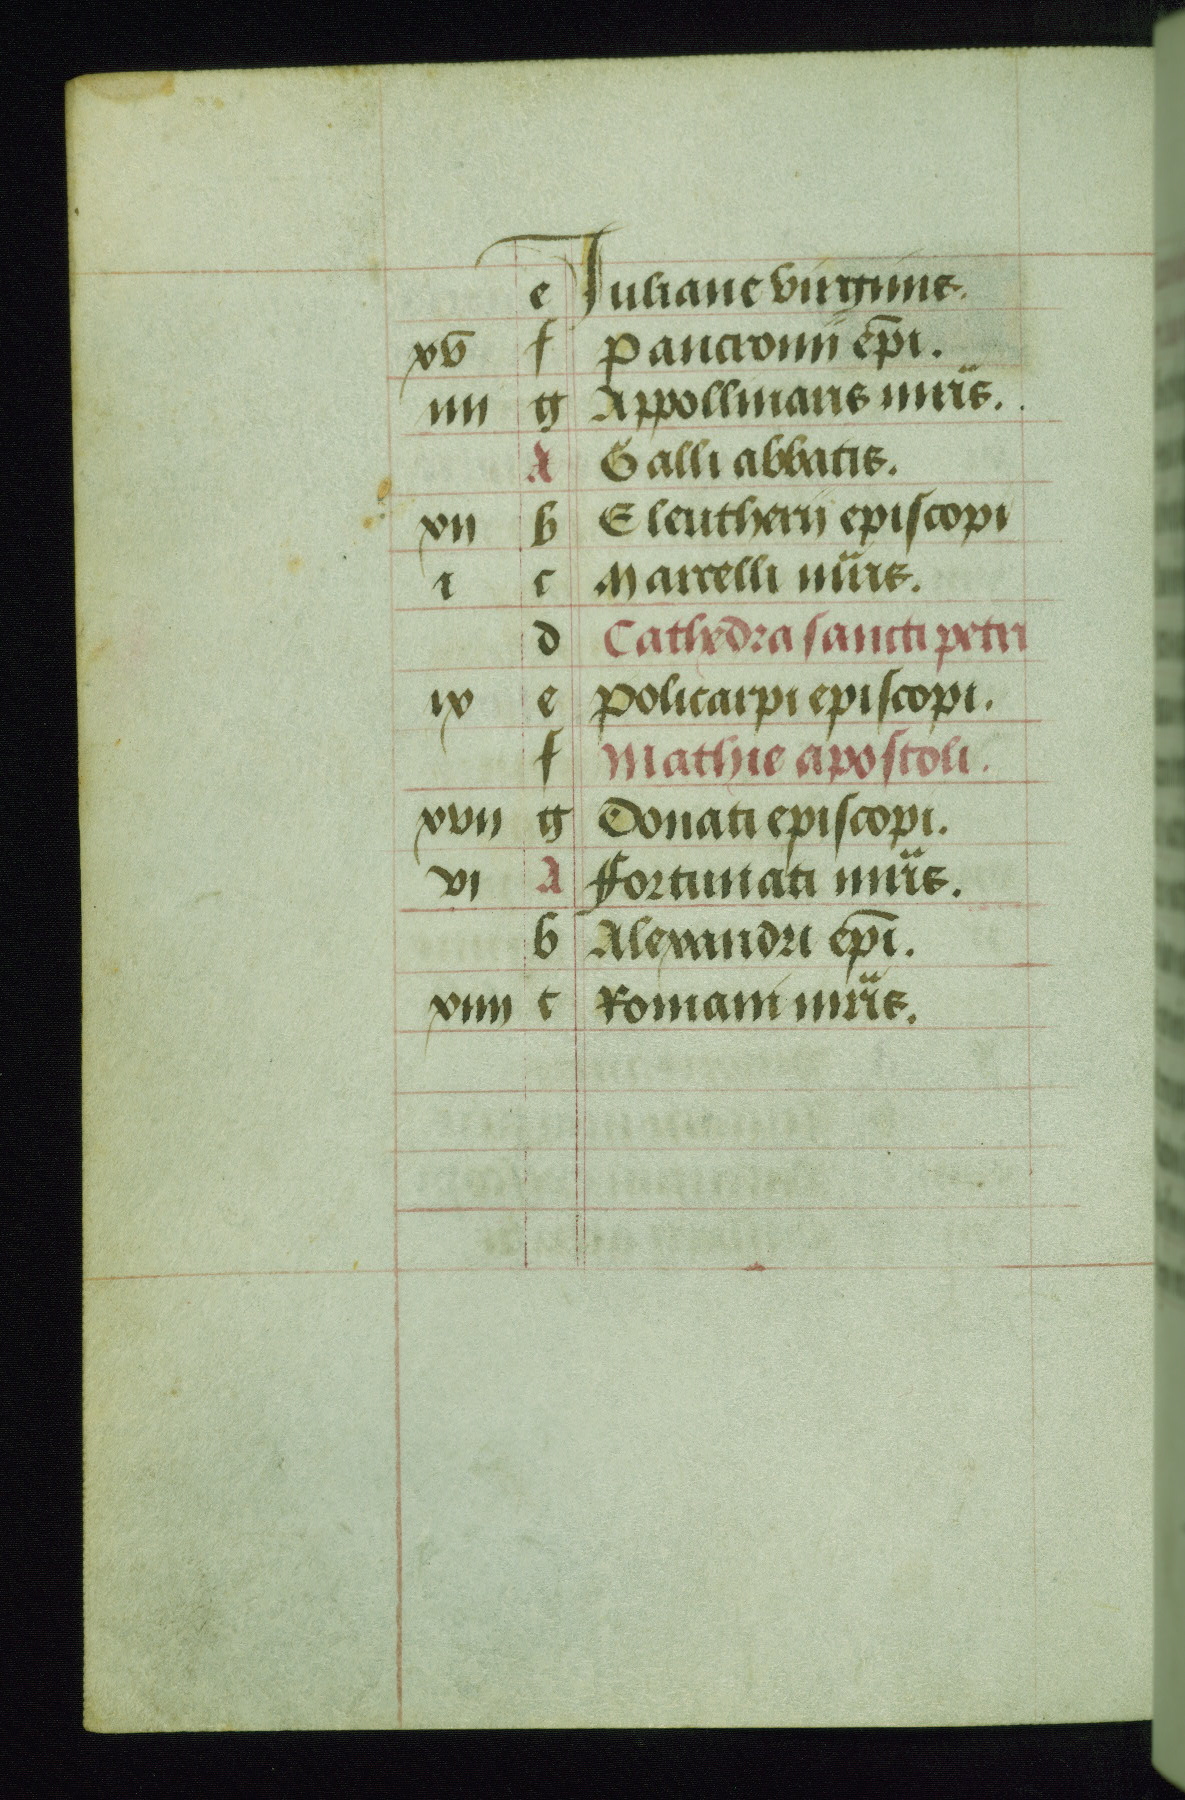 e Juliane virginis.
xv f Pancronii epi.
iiii g Appollinaris mris.
A Galli abbatis.
xii b Eleutherii episcopi
i c Marcelli mris.
d Cathedra sancti petri
ix e Policarpi episcopi.
f Mathie apostoli.
xvii g Donati episcopi.
vi A Fortunati mris.
b Alexandri epi.
xiiii c Romani mris.